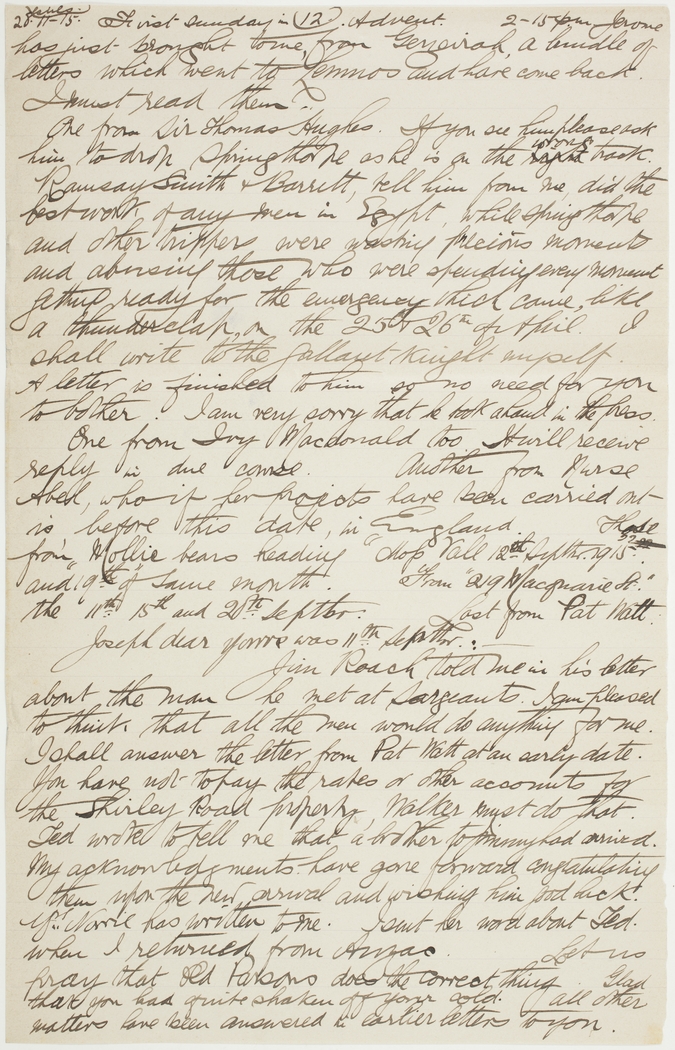 28.11-15. First sunday in (12). Advent. 2-15 pm Jerome
has just brought to me, from Gezeirah, a bundle of
letters which went to Lemnos and have come back.
I must read them :.
One from Sir Thomas Hughes. If you see him please ask
him to drop Springthorpe as he is on the wrong track.
Ramsay Smith & Barrett, tell him from me, did the
best work of any men in Egypt, while Springthorpe
and other trippers were wasting precious moments
and abusing those who were spending every moment
getting ready for the emergency which came, like
a thunderclap, on the 25th & 26th of April. I
shall write to the gallant Knight myself.
A letter is finished to him so no need for you
to bother. I am very sorry that he took a hand in the press.
One from Ivy Macdonald too. It will receive
reply in due course. Another from Nurse
Abell, who if her projects have been carried out
is before this date, in England. Those
from "Mollie bears heading "Mos Vale 12th Septbr. 1915
and 19th of same month. From "219 Macquarie St."
the 11th 15th and 20th Septbr: Last from Pat Watt.
Joseph dear yours was 11th Septbr. : —
Jim Roach told me in his letter
about the man he met at Sargeants. I am pleased
to think that all the men would do anything for me.
I shall answer the letter from Pat Watt at an early date.
You have not to pay the rates or other accounts for
the Shirley Road property, Walker must do that.
Ted wrote to tell me that a brother to Jimmy had arrived.
My acknowledgments have gone forward congratulating
them upon the new arrival and wishing him good luck.
Mrs Norrie has written to me. I sent her word about Ted.
when I returned from Anzac. Let us
pray that Old Parsons does the correct thing. Glad
that you had quite shaken off your cold. All other
matters have been answered in earlier letters to you.